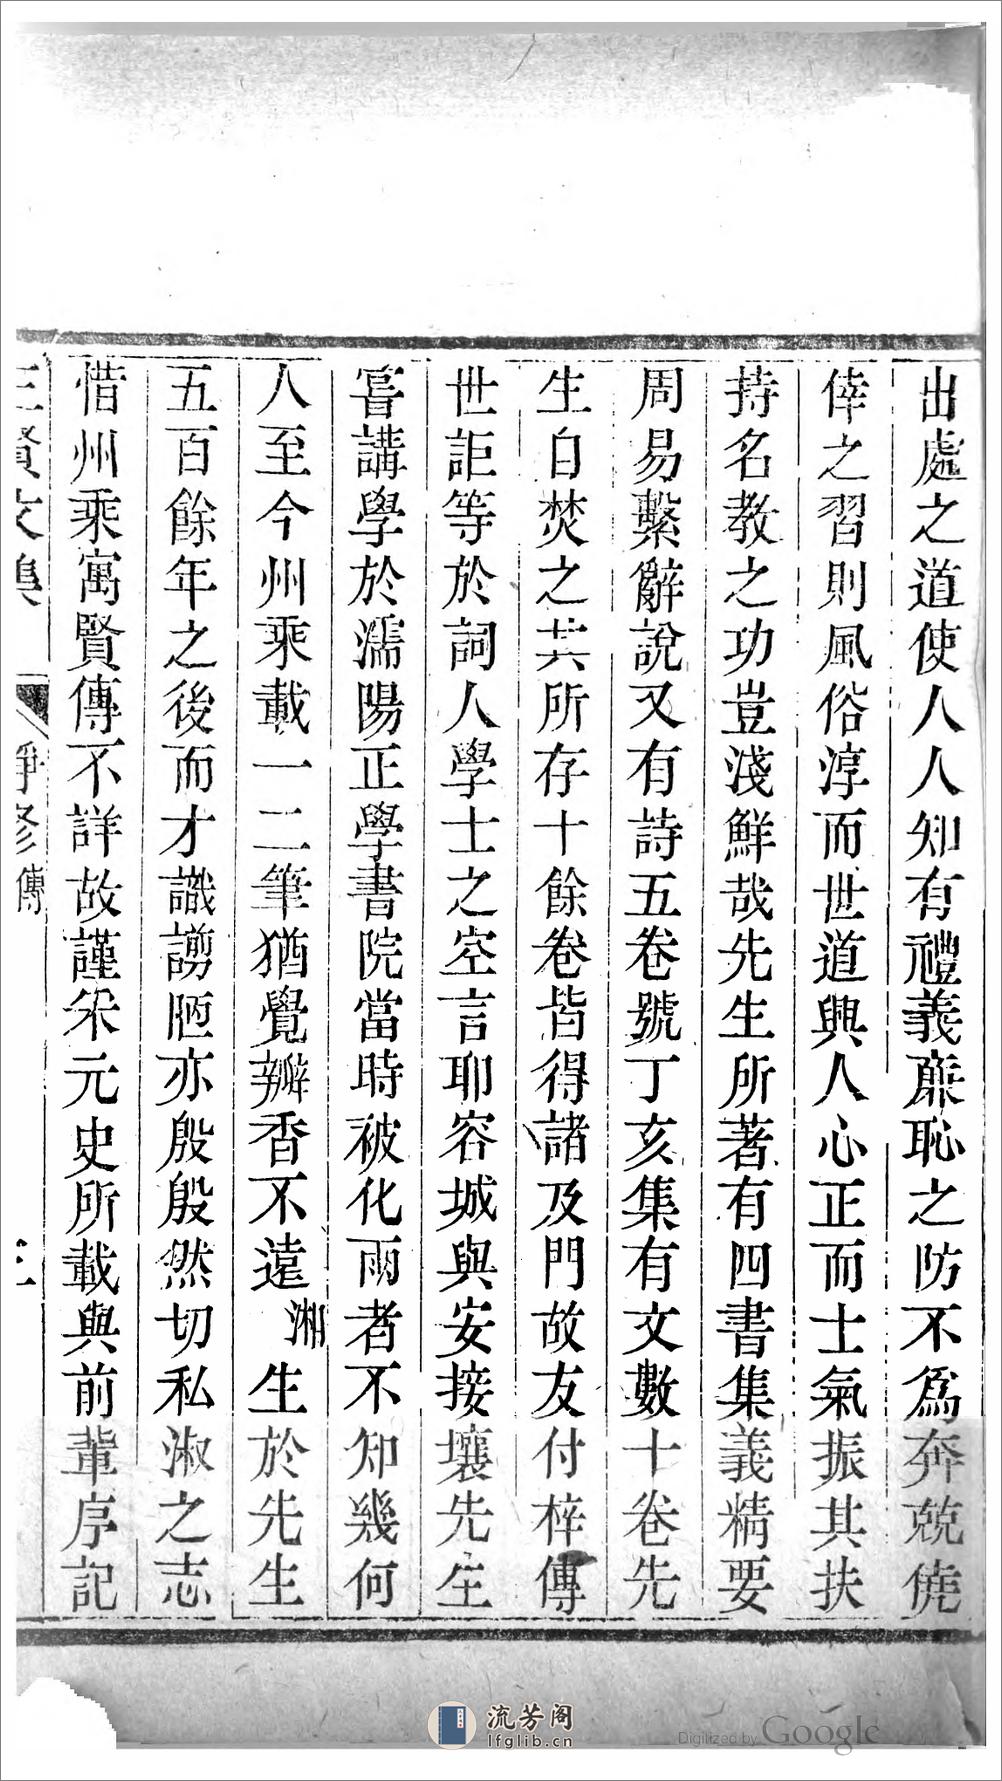 出處之道使人人知有禮義廉恥之防不爲奔兢僥
倖之習則風俗淳而世道興人心正而士氣振其扶
持名教之功豈淺鮮哉先生所著有四書集義精要
周易繫辭說又有詩五卷號丁亥集有文數十卷先
生自焚之其所存十餘卷皆得諸及門故友付梓傳
世詎等於詞人學士之空言耶容城與安接壤先生
嘗講學於濡陽正學書院當時被化雨者不知幾何
人至今州乘載一二筆猶覺瓣香不遠湘生於先生
五百餘年之後而才識謭陋亦殷殷然切私淑之志
惜州乘寓賢傳不詳故謹采元史所載與前輩序記
三賢文集 靜修傳 三
流芳阁
lfglib.cn
Digitized by Google